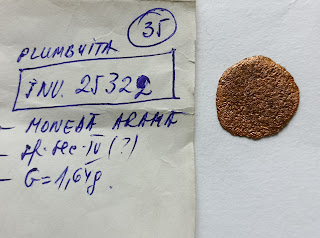 35
PLUMBUITA
INV. 25322
- MONEDĂ ARAMĂ
- sf. sec. IV (?)
- G = 1,64g.